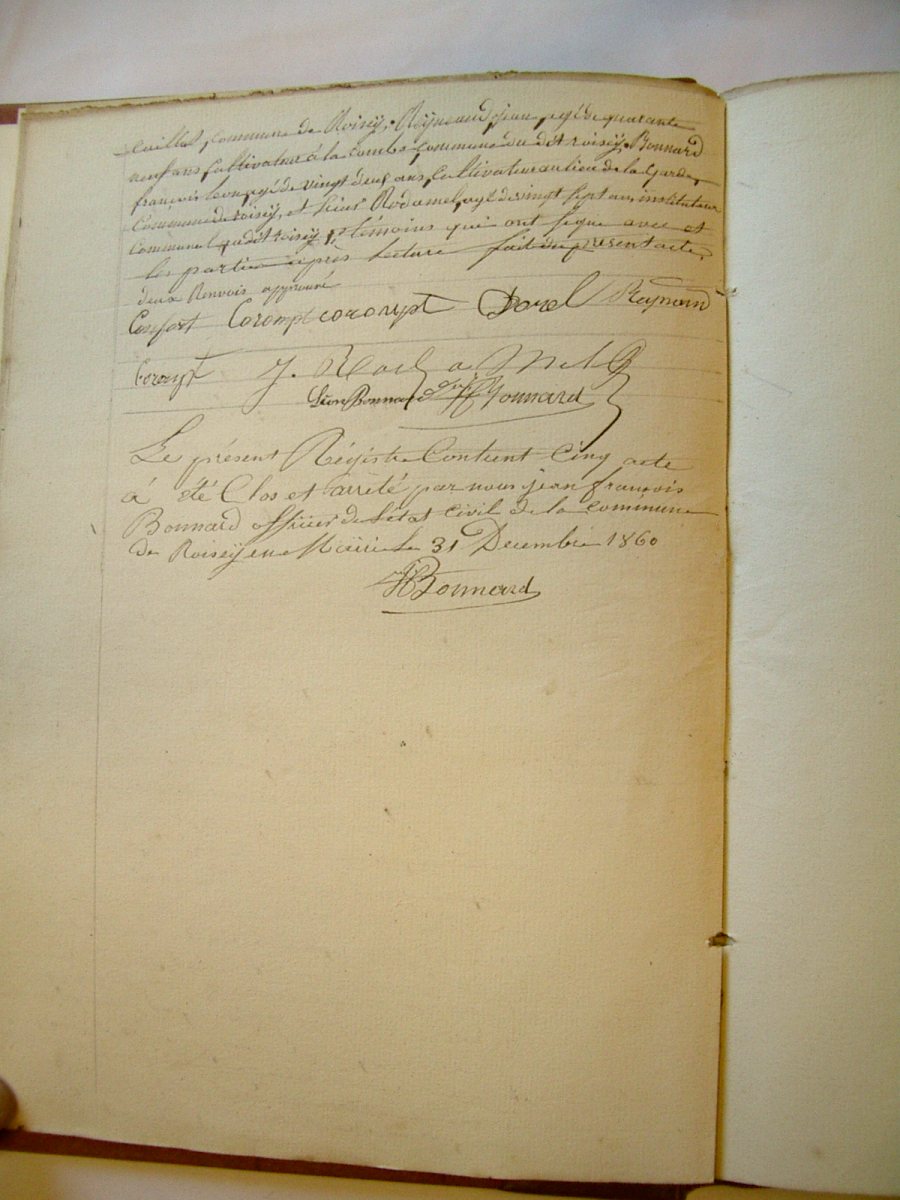 caillat commune de Roisey, Reynaud jean agé de quarante
neuf ans Cultivateur à la Combe commune du dit roisey, Bonnard
françois Leon agé de vingt deux ans Cultivateur au lieu de la Garde,
Commune de roisey, et Rodamel agé de vingt sept ans instituteur
communal qu dit roisey, témoins qui ont signe avec et
les parties après lecture fait du present acte,
deux Renvois approuvé
Confort Corompt corompt Dorel Reynaud
Corompt J. Rodamel
Léon Bonnard Bonnard
Le présent Régistre Contient Cinq acte
à été Clos et arrêté par nous jean françois
Bonnard officier de l'état civil de la commune
de Roisey en Mairie le 31 Decembre 1860
Bonnard